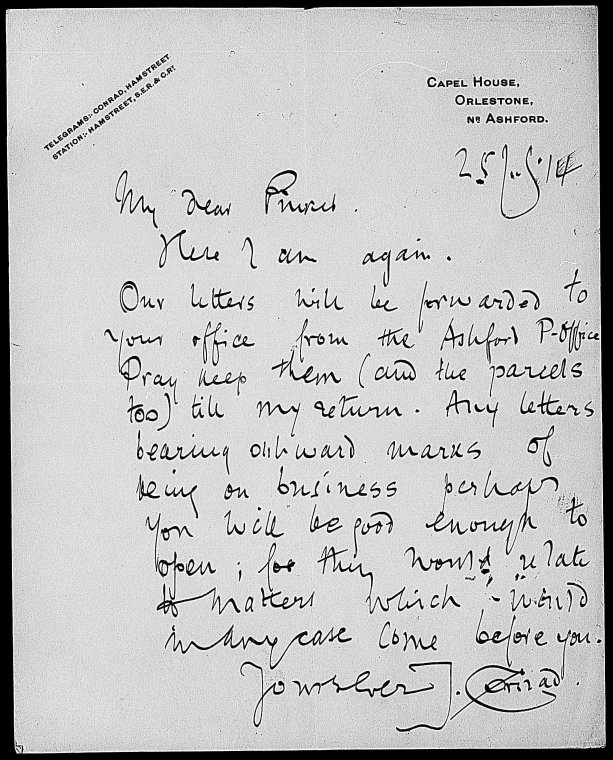 TELEGRAMS:- CONRAD, HAMSTREET
STATION:- HAMSTREET, S.E.R. & C.RY.
CAPEL HOUSE,
ORLESTONE,
NR ASHFORD.
25 July. 14
My dear Pinker.
Here I am again.
Our letters will be forwarded to
your office from the Ashford P-Office
Pray keep them (and the parcels
too) till my return. Any letters
bearing outward marks of
being on business perhaps
you will be good enough to
open; for they would relate
to matters which would
in any case come before you.
Yours ever J. Conrad.